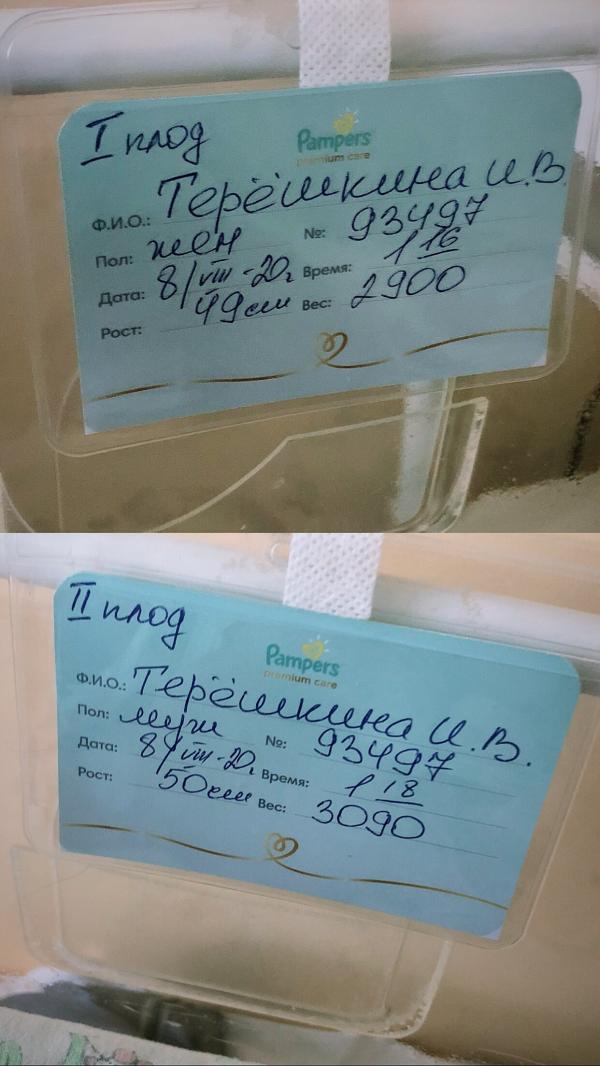 I плод
Pampers
premium care
Ф.И.О.: Терёшкина И.В.
Пол: жен №: 93497
Дата: 8/VIII-20г Время: 1 16
Рост: 49см Вес: 2900
II плод
Pampers
premium care
Ф.И.О.: Терёшкина И.В.
Пол: муж №: 93497
Дата: 8/VIII-20г Время: 1 18
Рост: 50см Вес: 3090